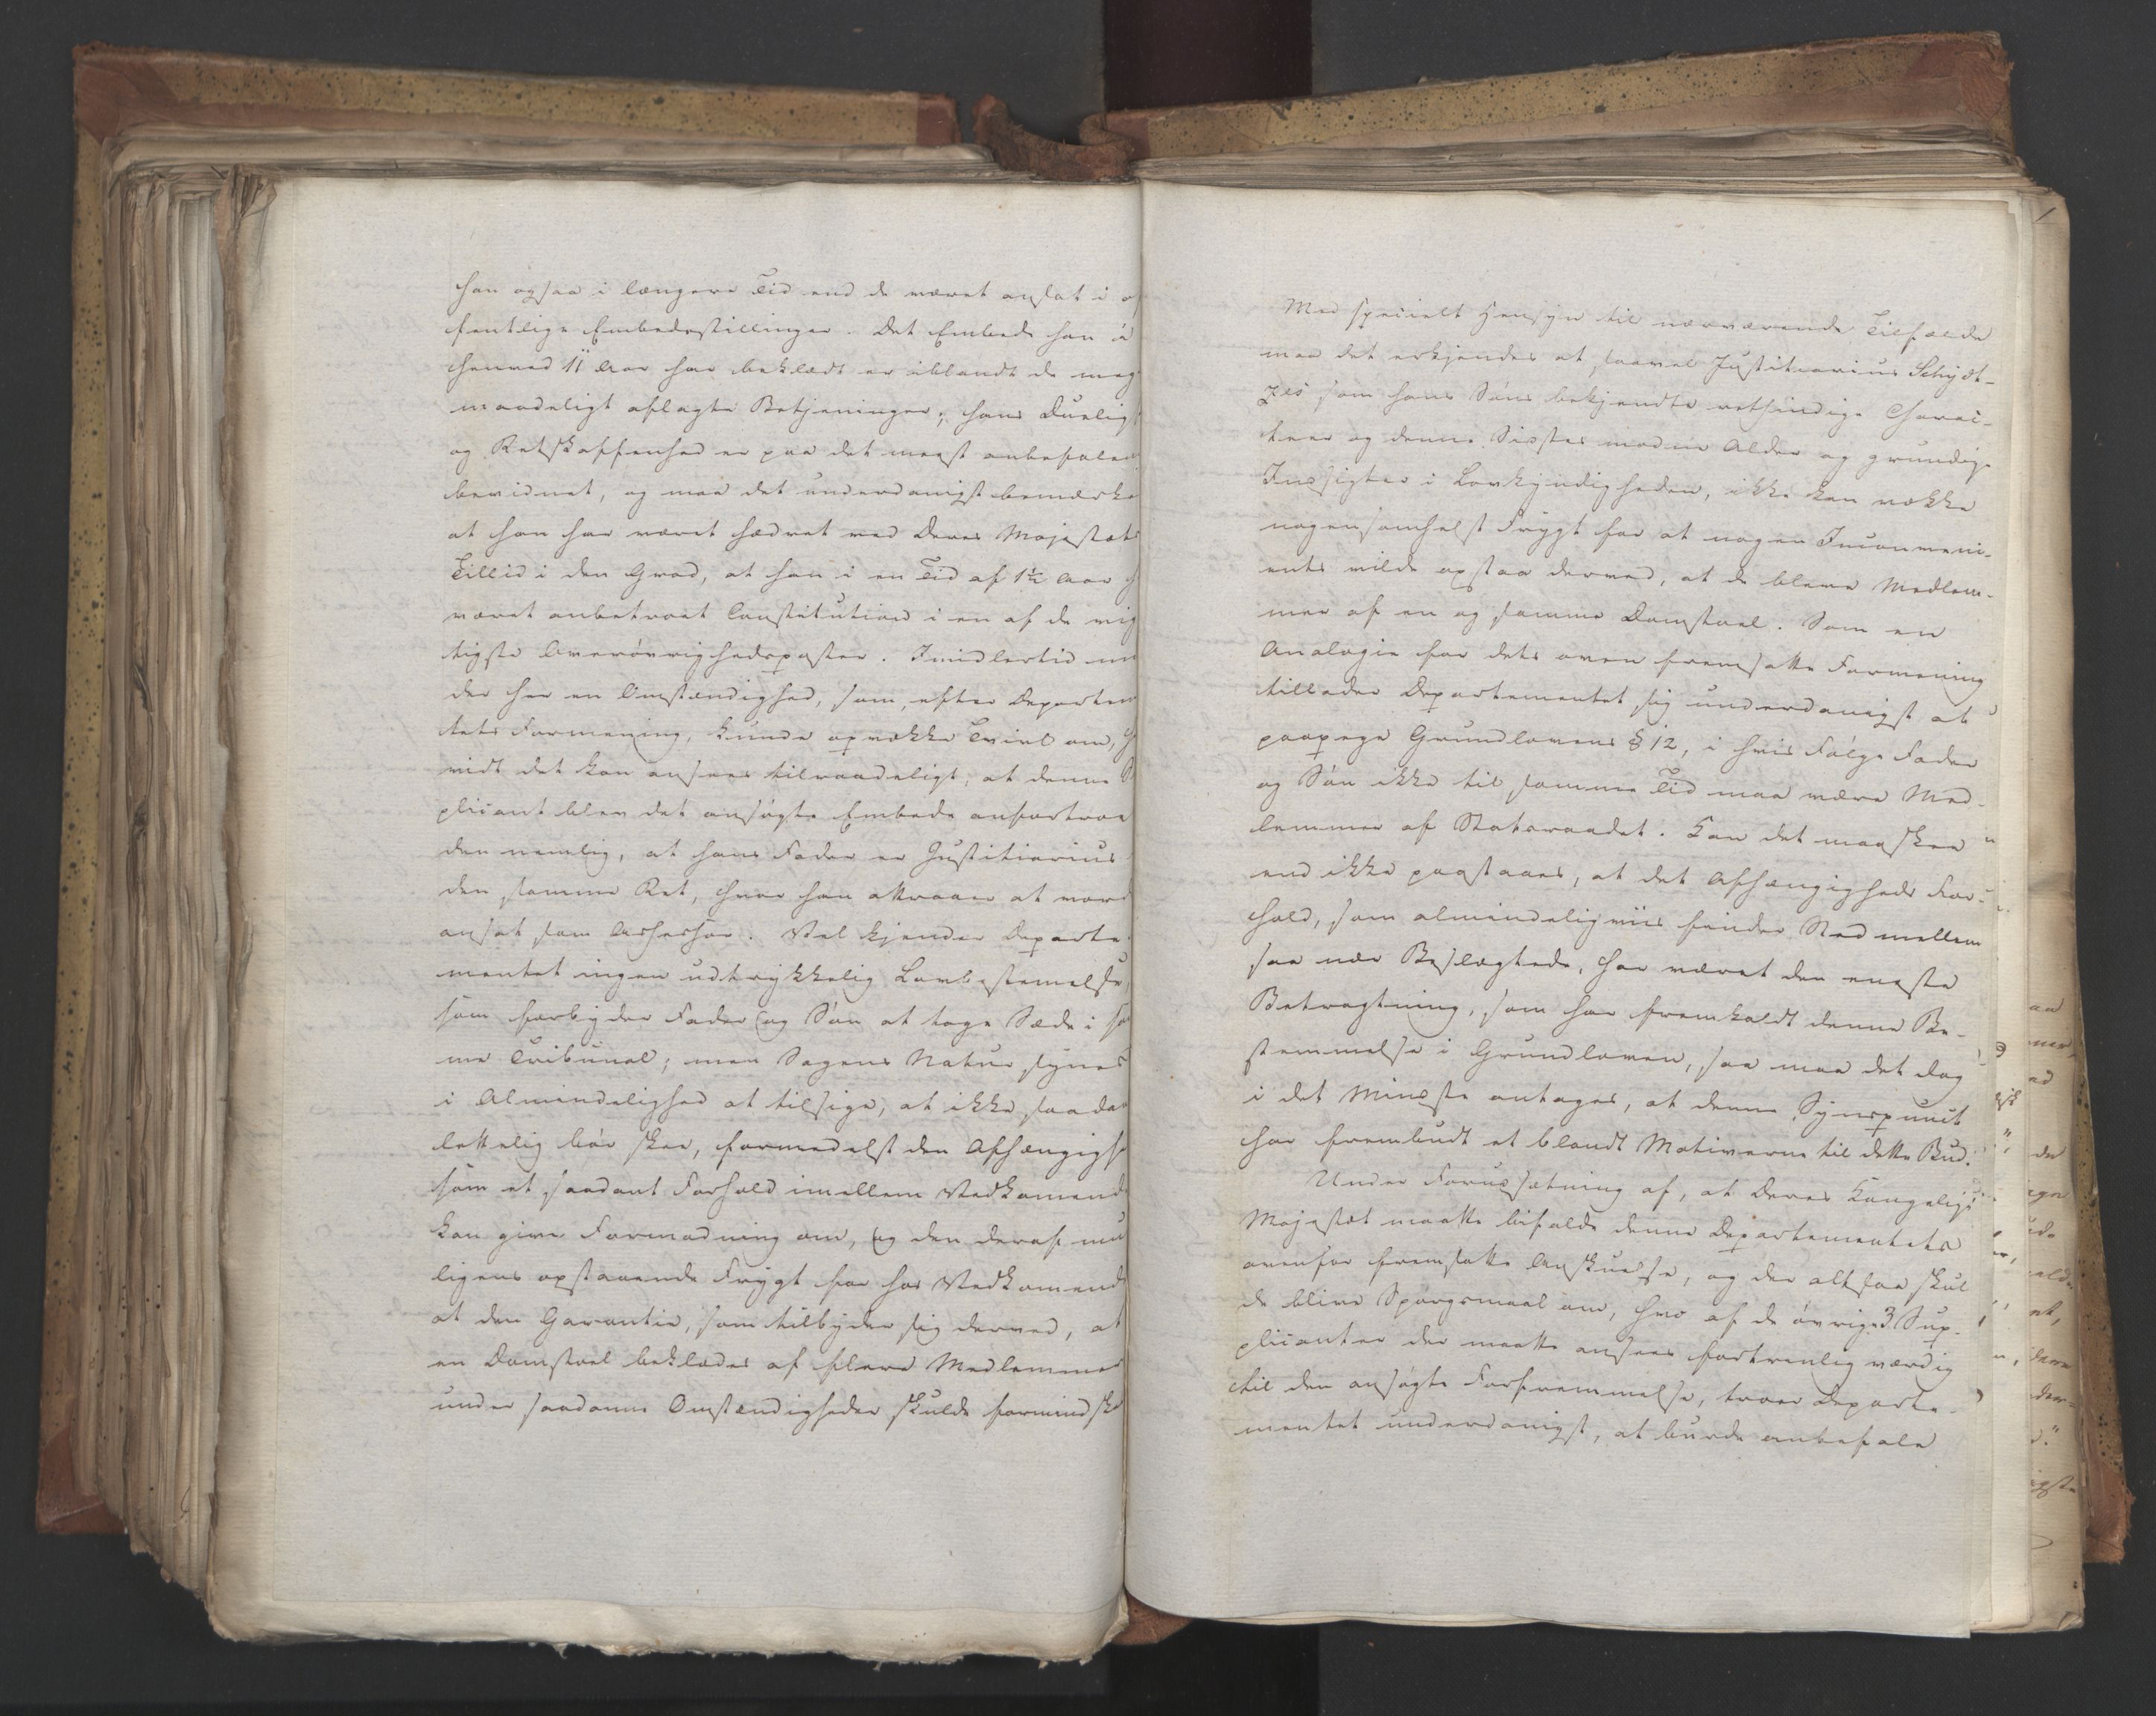 han ogsaa i længere Tid end de været ansat i of
fentlige Embedsstillinger. Det Embede han i
henved 11 Aar har beklædt er iblandt de meg
maadeligt aflagte Betjeninger; hans Duelig
og Retskaffenhed er paa det meest anbefalen
bevidnet, og maa det underdanigst bemærke
at han har været hædret med Deres Majestæts
Tillid i den Grad, at han i en Tid af 1½ Aar h
været anbetroet Constitution i en af de vig
tigste Overøvrighedsposter. Imidlertid
der her en Omstændighed, som, efter Departem
tets Formening, kunde opvække Tvivl om, h
vidt det kan ansees tilraadeligt, at denne S
plicant blev det ansøgte Embede anfortroe
den nemlig, at hans Fader er Justitiarius
den samme Ret, hvor han attraaer at vor
ansat som Assessor. Vel kjender Departe
mentet ingen udtrykkelig Lovbestemelse,
som forbyder Fader og Søn at tage Sæde i sa
me Tribunal; men Sagens Natur synes
i Almindelighed at tilsige, at ikke saada
lettelig bør skee, formedelst den Afhængigh
som et saadant Forhold imellem Vedkomend
kan give Formodning om, og den deraf mu
ligens opstaaende Frygt for hos Vedkomend
at den Garantie, som tilbyder sig derved, at
en Domstoel beklædes af flere Medlemmer
under saadanne Omstændigheder skulde formindske
Med specielt Hensyn til nærværende Tilfælde
maa det erkjendes at saavel Justitiarius Schydt-
zes som hans Søns bekjendte retsindige Charac-
teer og denne Sidstes modne Alder og grundige
Indsigter i Lovkyndigheden, ikke kan vække
nogensomhelst Frygt for at nogen Inconveni-
ents vilde opstaa derved, at de bleve Medlem-
mer af en og samme Domstoel. Som en
Analogie for dets oven fremsatte Formening
tillader Departementet sig underdanigst at
paapege Grundlovens § 12, i hvis Følge Fader
og Søn ikke til samme Tid maa være Med-
lemmer af Statsraadet. Kan det maaskee
end ikke paastaaes, at det Afhængigheds For-
hold, som almindeligviis finder Sted mellem
saa nær Beslægtede, har været den eneste
Betragtning, som har fremkaldt denne Be-
stemmelse i Grundloven, saa maa det dog
i det Mindste antages, at denne Synspunct
har frembudt et blandt Motiverne til dette Bud.
Under Forudsætning af, at Deres Kongelige
Majestæt maatte bifalde denne Departementets
ovenfor fremsatte Anskuelse, og der altsaa skul
de blive Spørgsmaal om, hvo af de øvrige 3 Sup-
plicanter der maatte ansees fortrinlig værdig
til den ansøgte Forfremmelse, troer Departe-
mentet underdanigst, at burde anbefale